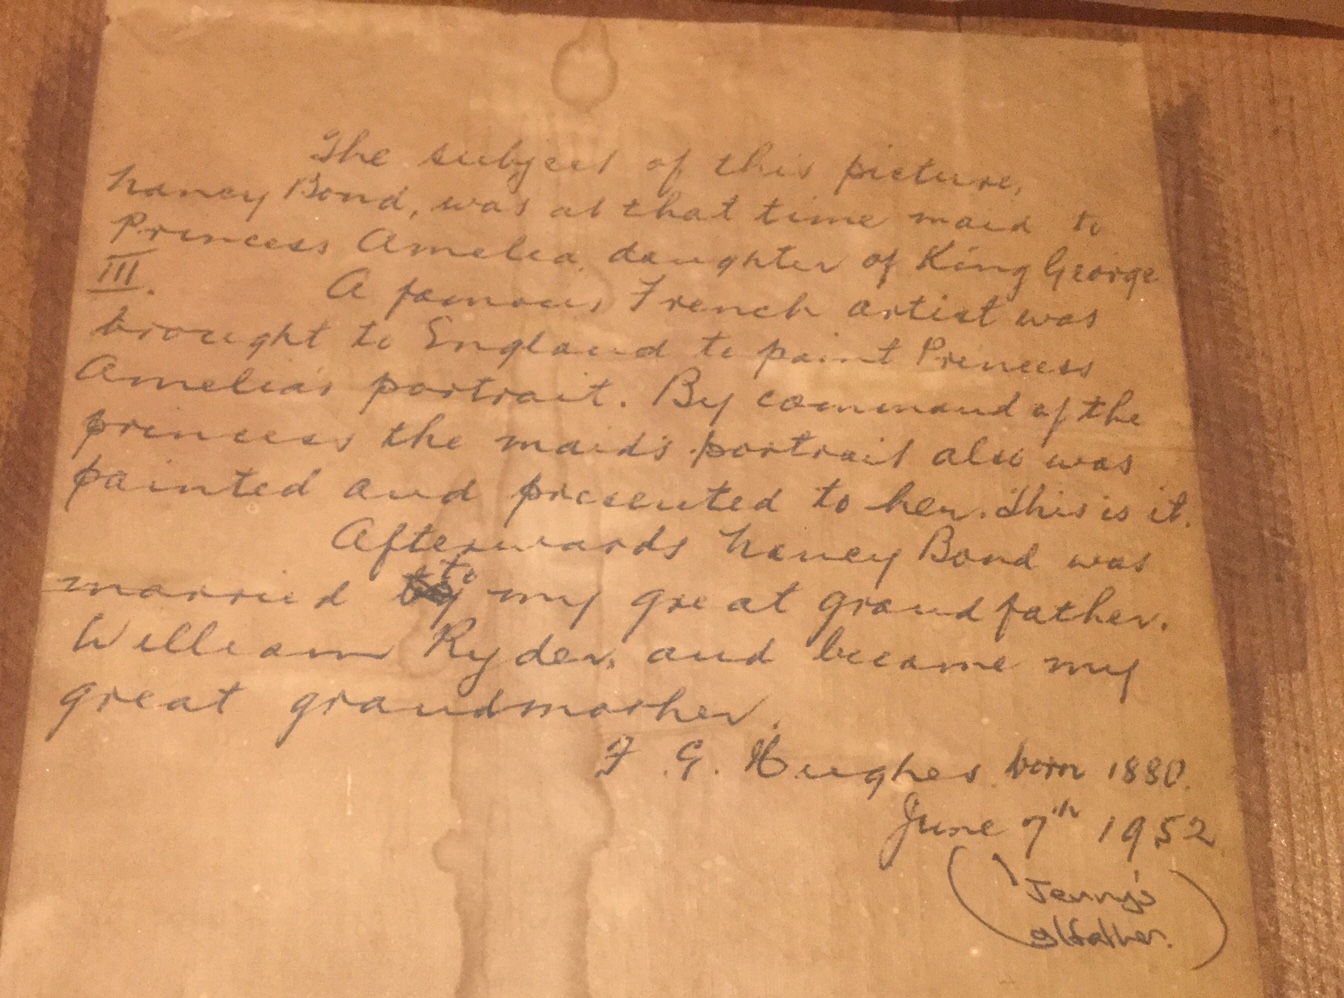 The subject of this picture,
Nancy Bond, was at that time maid to
Princess Amelia, daughter of King George
III. A famous French artist was
brought to England to paint Princess
Amelia's portrait. By command of the
princess the maid's portrait also was
painted and presented to her. This is it.
Afterwards Nancy Bond was
married to my great grandfather,
William Ryder, and became my
great grandmother.
F. G. Hughes born 1880.
June 7th 1952
(Jenny's
g/father.)